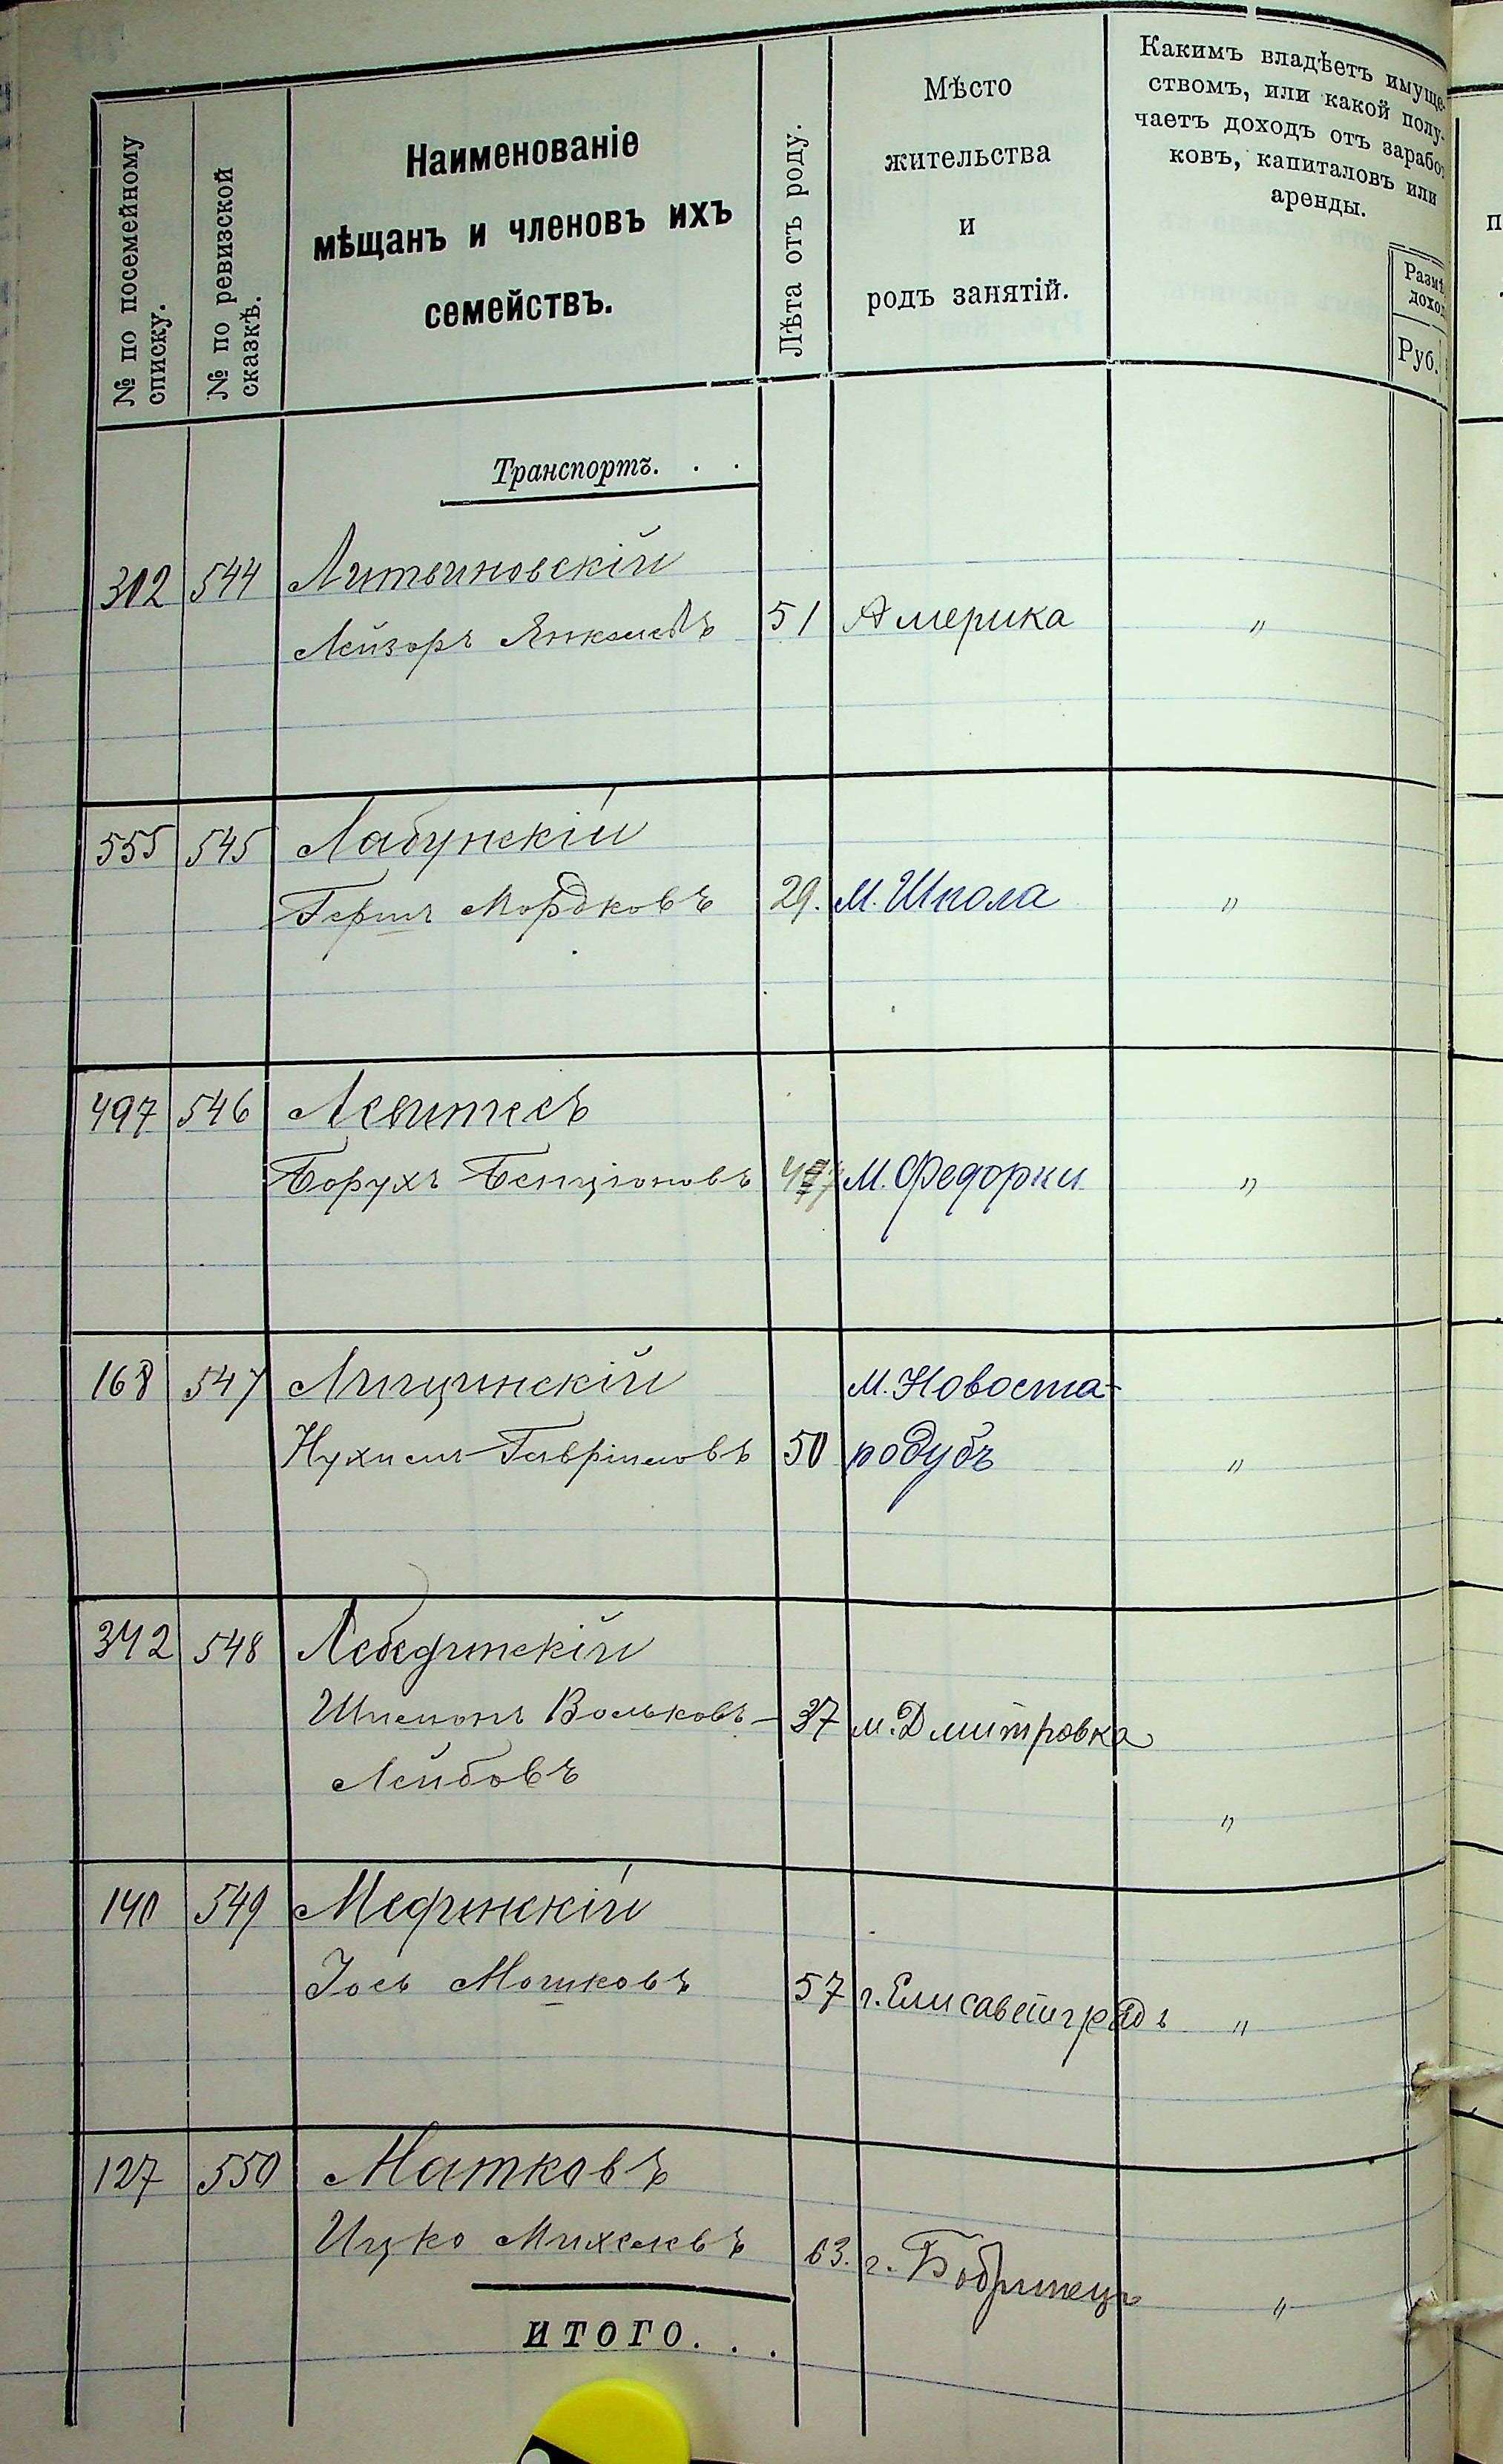 № по посемейному списку.
№ по ревизской сказкѣ.
Наименованіе
мѣщанъ и членовъ ихъ
семействъ.
Лѣта отъ роду.
Мѣсто
жительства
и
родъ занятій.
Какимъ владѣетъ имуще-
ствомъ, или какой полу-
чаетъ доходъ отъ зарабо
ковъ, капиталовъ или
аренды.
Разм
доход
Руб.
Транспортъ. . .
302 544 Литвиновскій
Лейзоръ Янкелевъ 51 Америка "
555 545 Лабунскій
Гершъ Мордковъ 29. М. Шпола "
497 546 Левитесъ
Борухъ Бенціоновъ М. Федорки "
168 547 Лищинскій М. Новоста-
Нухимъ Гавріиловъ 50 родубъ "
342 548 Лебединскій
Шлемонъ Вольковъ- 37 м. Дмитровка
Лейбовъ "
140 549 Мединскій
Іось Мошковъ 57 г. Елисаветградъ "
127 550 Матковъ
Ицко Михелевъ 63. г. Бобринецъ "
ИТОГО. . .